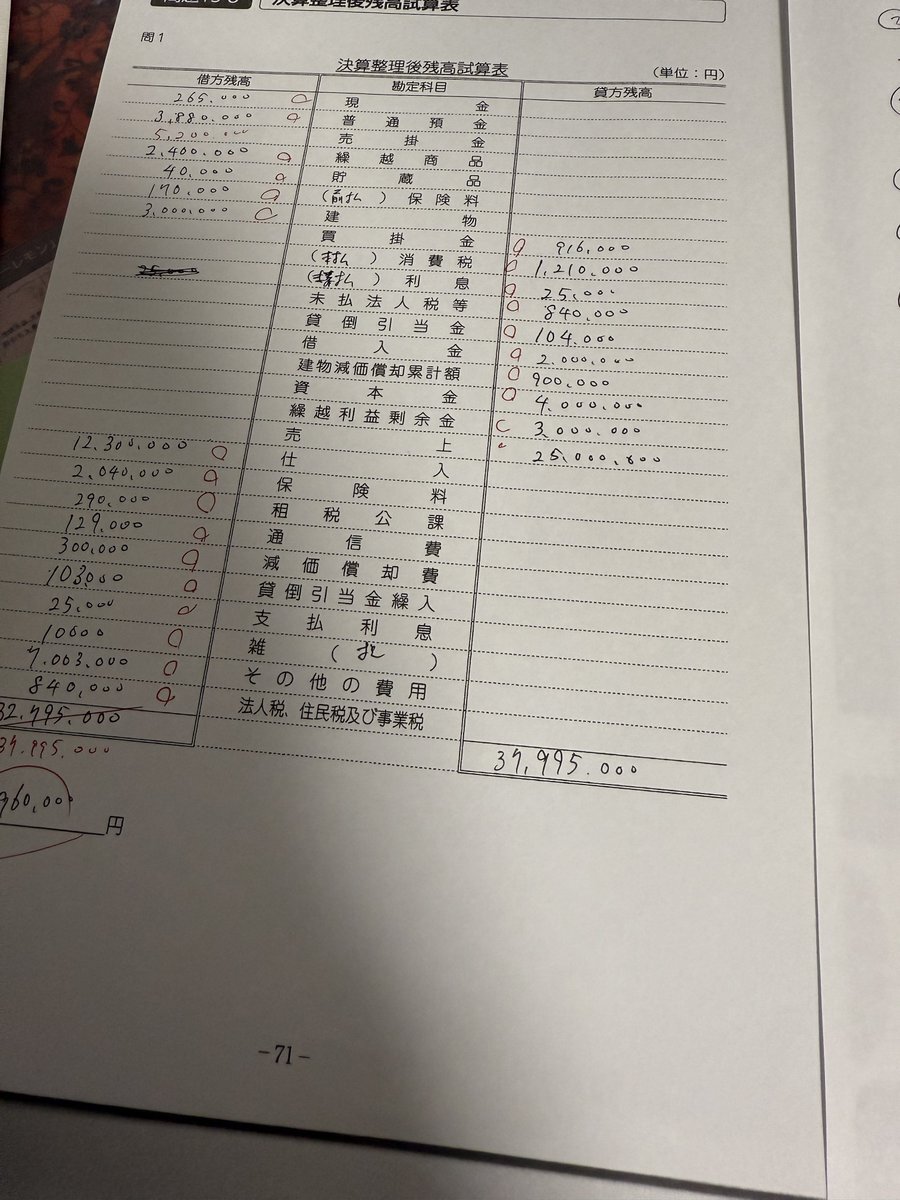 決算整理後残高試算表
問1
決算整理後残高試算表
(単位：円)
借方残高 勘定科目 貸方残高
265.000 現金
3,880.000 普通預金
5,200.000 売掛金
2,400.000 繰越商品
40.000 貯蔵品
170.000 (前払) 保険料
3,000.000 建物
買掛金 916,000
(未払) 消費税 1,210.000
25.000 (未払) 利息 25,000
未払法人税等 840.000
貸倒引当金 104.000
借入金 2.000.000
建物減価償却累計額 900,000
資本金 4.000.000
繰越利益剰余金 3.000.000
売上 25.000.000
12.300.000 仕入
2.040,000 保険料
290,000 租税公課
129.000 通信費
300,000 減価償却費
103,000 貸倒引当金繰入
25,000 支払利息
10000 雑( )
7.003.000 その他の費用
840,000 法人税、住民税及び事業税
32.795.000 37,995.000
37.995.000
960,000
円
-71-